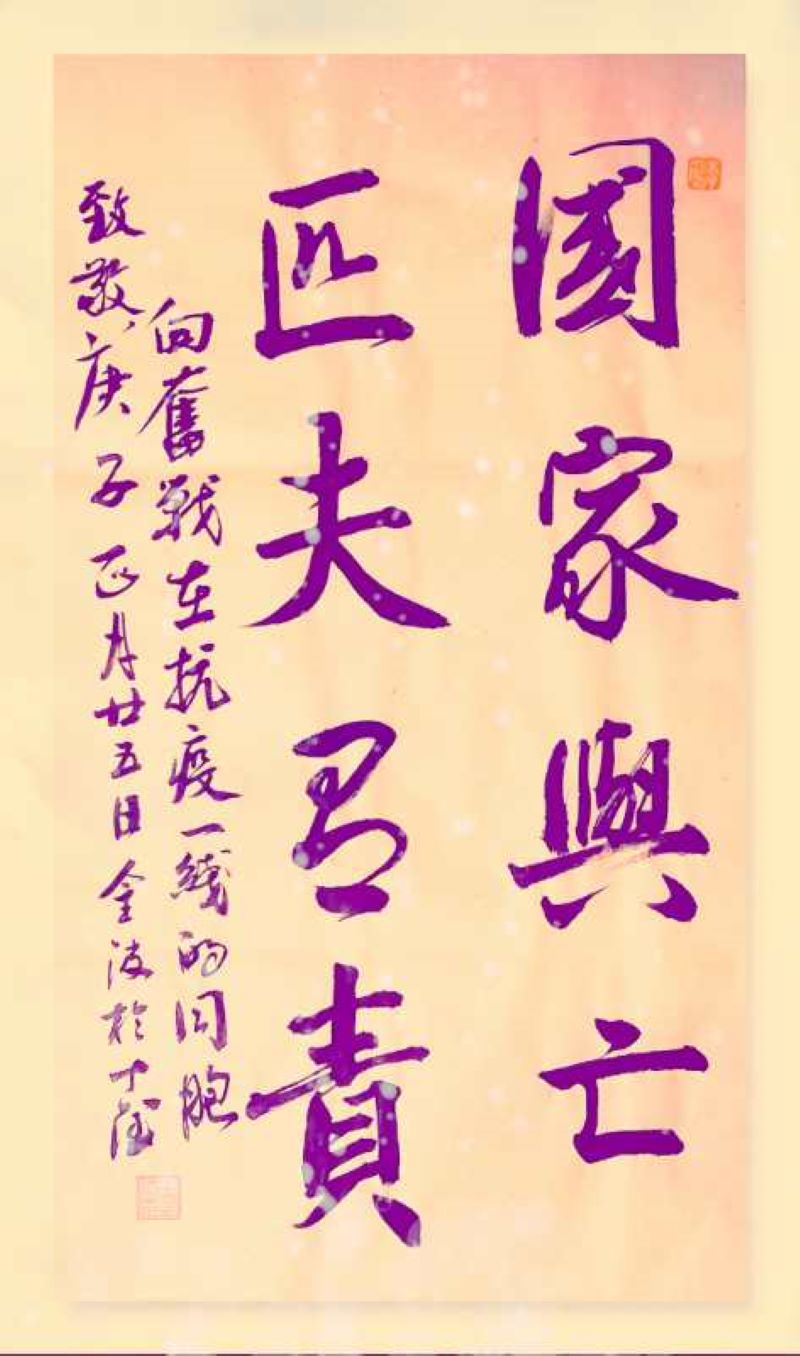 國家興亡
匹夫有責
向奮戰在抗疫一綫的同胞
致敬庚子正月廿五日金波於十